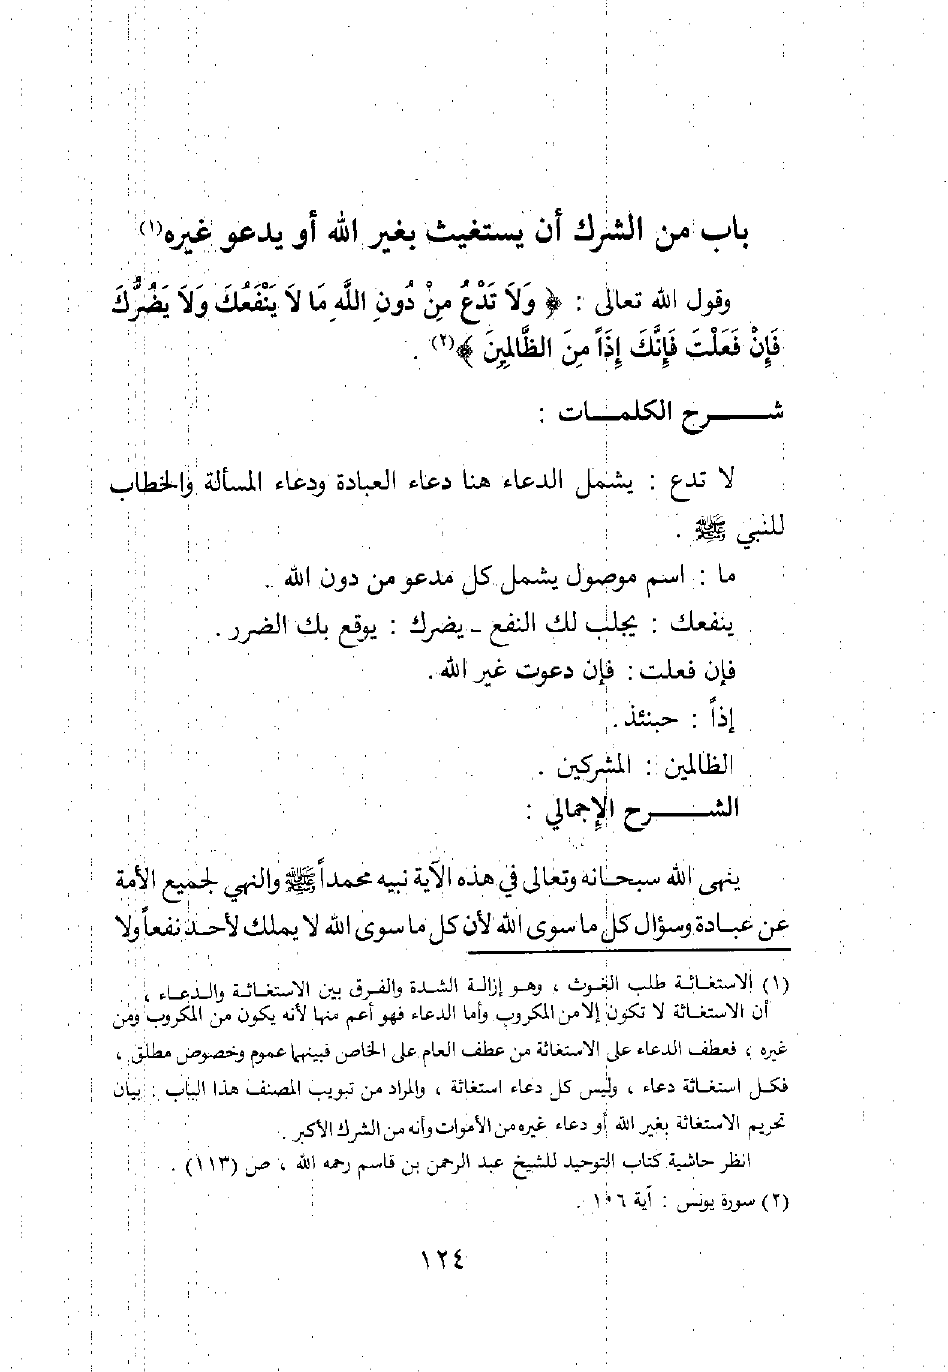 باب من الشرك أن يستغيث بغير الله أو يدعو غيره(١)
وقول الله تعالى : ﴿ وَلاَ تَدْعُ مِنْ دُونِ اللَّهِ مَا لاَ يَنْفَعُكَ وَلاَ يَضُرُّكَ
فَإِنْ فَعَلْتَ فَإِنَّكَ إِذَاً مِنَ الظَّالِمِينَ ﴾(٢) .
شـرح الكلمـات :
لا تدع : يشمل الدعاء هنا دعاء العبادة ودعاء المسألة والخطاب
للنبي ﷺ .
ما : اسم موصول يشمل كل مدعو من دون الله .
ينفعك : يجلب لك النفع ـ يضرك : يوقع بك الضرر .
فإن فعلت : فإن دعوت غير الله .
إذاً : حينئذ .
الظالمين : المشركين .
الشـرح الإجمالي :
ينهى الله سبحانه وتعالى في هذه الآية نبيه محمداً ﷺ والنهي لجميع الأمة
عن عبادة وسؤال كل ما سوى الله لأن كل ما سوى الله لا يملك لأحد نفعاً ولا
(١) الاستغاثة طلب الغوث ، وهو إزالة الشدة والفرق بين الاستغاثة والدعاء ،
أن الاستغاثة لا تكون إلا من المكروب وأما الدعاء فهو أعم منها لأنه يكون من المكروب ومن
غيره ، فعطف الدعاء على الاستغاثة من عطف العام على الخاص فبينهما عموم وخصوص مطلق ،
فكل استغاثة دعاء ، وليس كل دعاء استغاثة ، والمراد من تبويب المصنف هذا الباب : بيان
تحريم الاستغاثة بغير الله أو دعاء غيره من الأموات وأنه من الشرك الأكبر .
انظر حاشية كتاب التوحيد للشيخ عبد الرحمن بن قاسم رحمه الله ، ص (١١٣) .
(٢) سورة يونس : آية ١٠٦ .
١٢٤